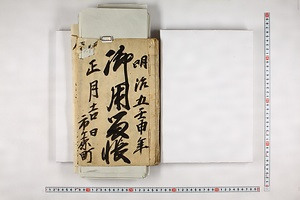 明治五壬申年
御用留帳
正月吉日